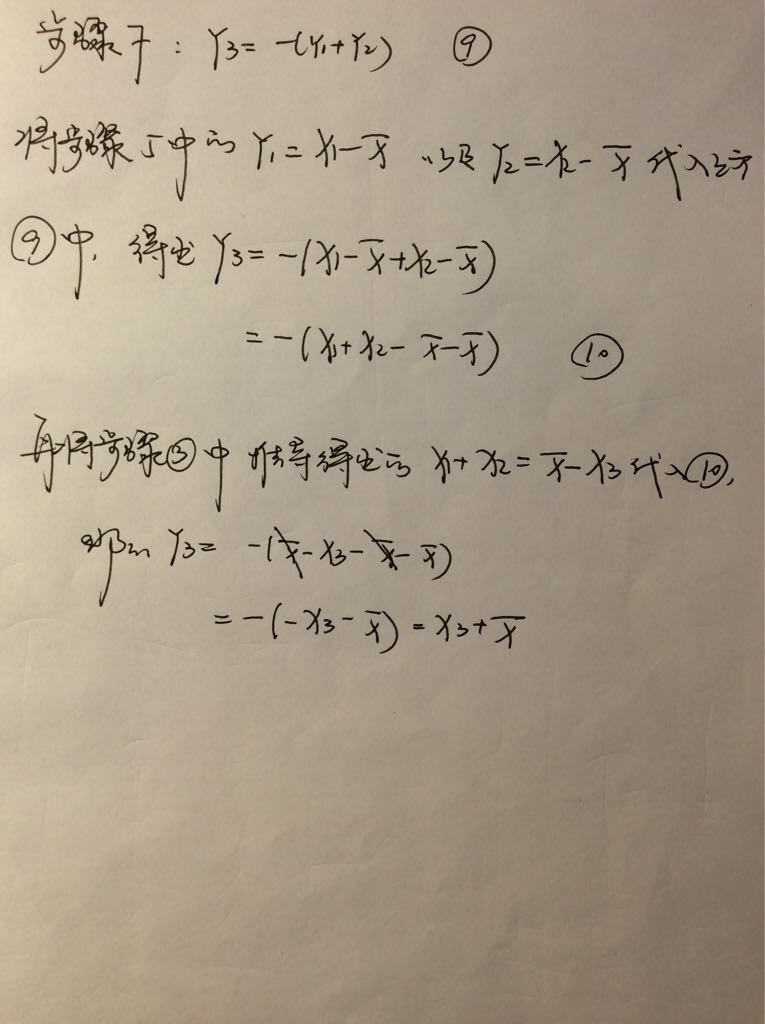 步骤7: Y₃= -(Y₁+Y₂) ⑨
将步骤5中的 Y₁= X₁-X̅ 以及 Y₂= X₂- X̅ 代入
⑨中, 得出 Y₃= -(X₁-X̅+X₂-X̅)
= -(X₁+X₂- X̅-X̅) ⑩
再将步骤③中推导得出的 X₁+X₂= X̅-X₃ 代入⑩,
那么 Y₃= -(X̅-X₃-X̅- X̅)
= -(-X₃-X̅) = X₃+X̅